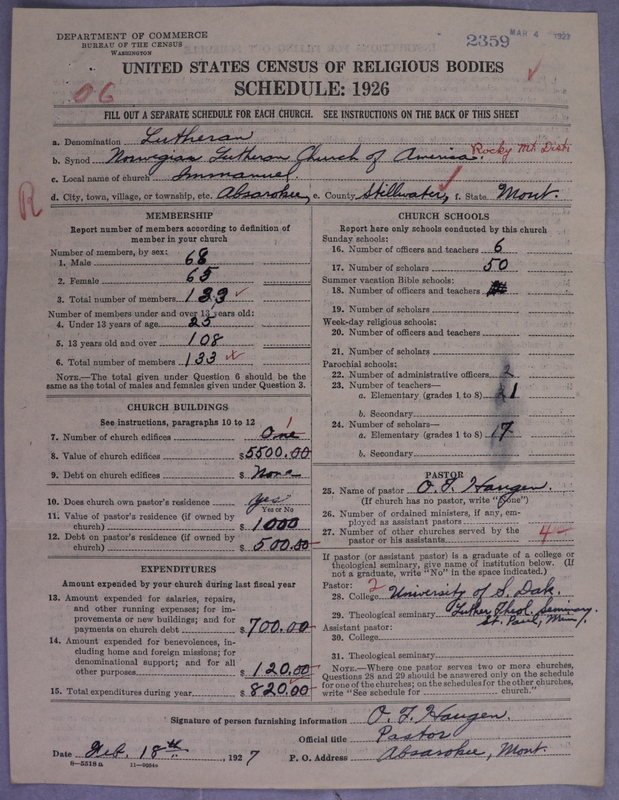 DEPARTMENT OF COMMERCE
BUREAU OF THE CENSUS
WASHINGTON
2359
MAR 4 1927
UNITED STATES CENSUS OF RELIGIOUS BODIES
SCHEDULE: 1926
06
FILL OUT A SEPARATE SCHEDULE FOR EACH CHURCH. SEE INSTRUCTIONS ON THE BACK OF THIS SHEET
a. Denomination Lutheran
b. Synod Norwegian Lutheran Church of America. Rocky Mt. Dist.
c. Local name of church Immanuel
d. City, town, village, or township, etc. Absarokee, e. County Stillwater, f. State Mont.
R
MEMBERSHIP
Report number of members according to definition of member in your church
Number of members, by sex:
1. Male 68
2. Female 65
3. Total number of members 133
Number of members under and over 13 years old:
4. Under 13 years of age 25
5. 13 years old and over 108
6. Total number of members 133
NOTE.—The total given under Question 6 should be the same as the total of males and females given under Question 3.
CHURCH BUILDINGS
See instructions, paragraphs 10 to 12
7. Number of church edifices One 1
8. Value of church edifices $5500.00
9. Debt on church edifices $ None
10. Does church own pastor's residence yes
Yes or No
11. Value of pastor's residence (if owned by church) $ 1000
12. Debt on pastor's residence (if owned by church) $ 500.00
EXPENDITURES
Amount expended by your church during last fiscal year
13. Amount expended for salaries, repairs, and other running expenses; for improvements or new buildings; and for payments on church debt $700.00
14. Amount expended for benevolences, including home and foreign missions; for denominational support; and for all other purposes $ 120.00
15. Total expenditures during year $ 820.00
CHURCH SCHOOLS
Report here only schools conducted by this church
Sunday schools:
16. Number of officers and teachers 6
17. Number of scholars 50
Summer vacation Bible schools:
18. Number of officers and teachers
19. Number of scholars
Week-day religious schools:
20. Number of officers and teachers
21. Number of scholars
Parochial schools:
22. Number of administrative officers 2
23. Number of teachers—
a. Elementary (grades 1 to 8) 1
b. Secondary
24. Number of scholars—
a. Elementary (grades 1 to 8) 17
b. Secondary
PASTOR
25. Name of pastor O. F. Haugen.
(If church has no pastor, write "None")
26. Number of ordained ministers, if any, employed as assistant pastors
27. Number of other churches served by the pastor or his assistants 4
If pastor (or assistant pastor) is a graduate of a college or theological seminary, give name of institution below. (If not a graduate, write "No" in the space indicated.)
Pastor: 2
28. College University of S. Dak.
29. Theological seminary Luther Theol. Seminary. St. Paul, Minn.
Assistant pastor:
30. College
31. Theological seminary
NOTE.—Where one pastor serves two or more churches, Questions 28 and 29 should be answered only on the schedule for one of the churches; on the schedules for the other churches, write "See schedule for church."
Signature of person furnishing information O. F. Haugen.
Official title Pastor
Date Feb. 18th, 1927 P. O. Address Absarokee, Mont.
8—5518 a 11—9004a